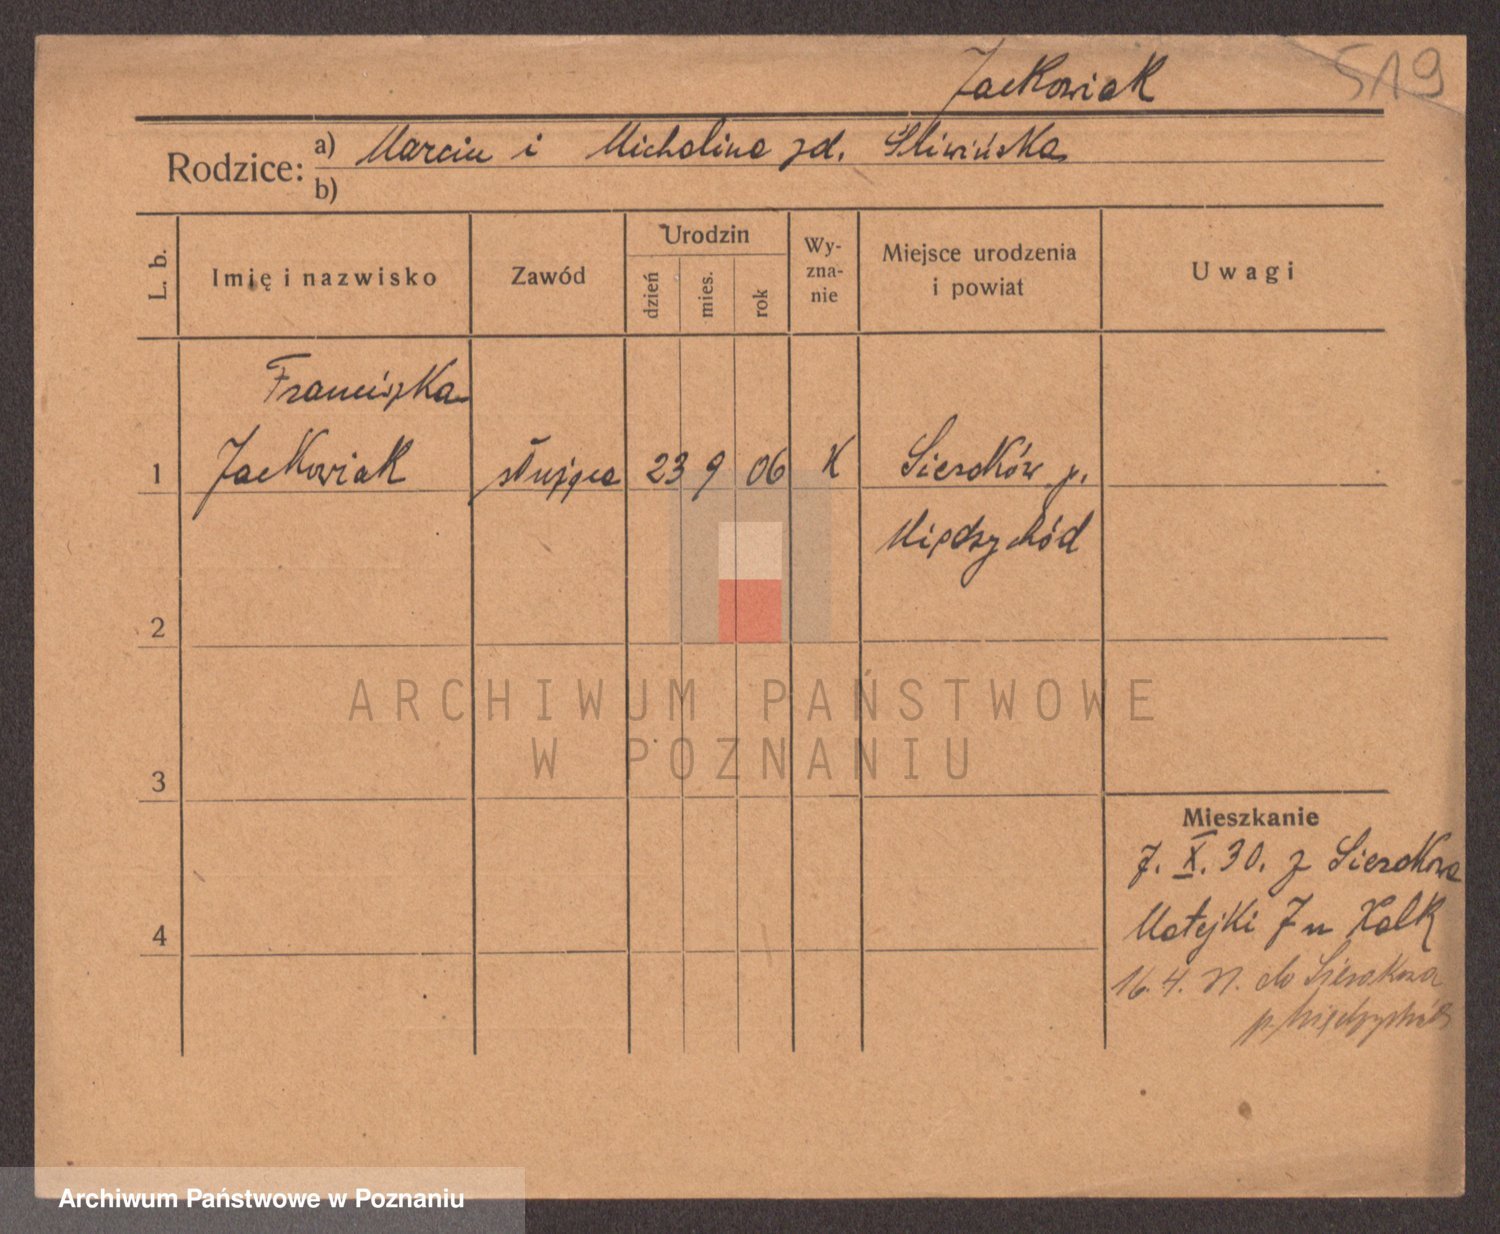 Jackowiak 519
Rodzice: a) Marcin i Michalina zd. Śliwińska
b)
L. b.
Imię i nazwisko
Zawód
Urodzin
dzień
mies.
rok
Wy-
zna-
nie
Miejsce urodzenia
i powiat
Uwagi
Franciszka
1 Jackowiak służąca 23 9 06 K Sieraków p.
Międzychód
2
3
4
Mieszkanie
7. X. 30. z Sierakowa
Matejki 7 u Kalk
16. 4. 31. do Sierakowa
p. Międzychód
ARCHIWUM PAŃSTWOWE
W POZNANIU
Archiwum Państwowe w Poznaniu